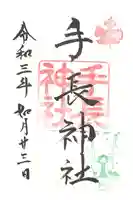 手長神社
令和三年 如月廿三日
手長
神社